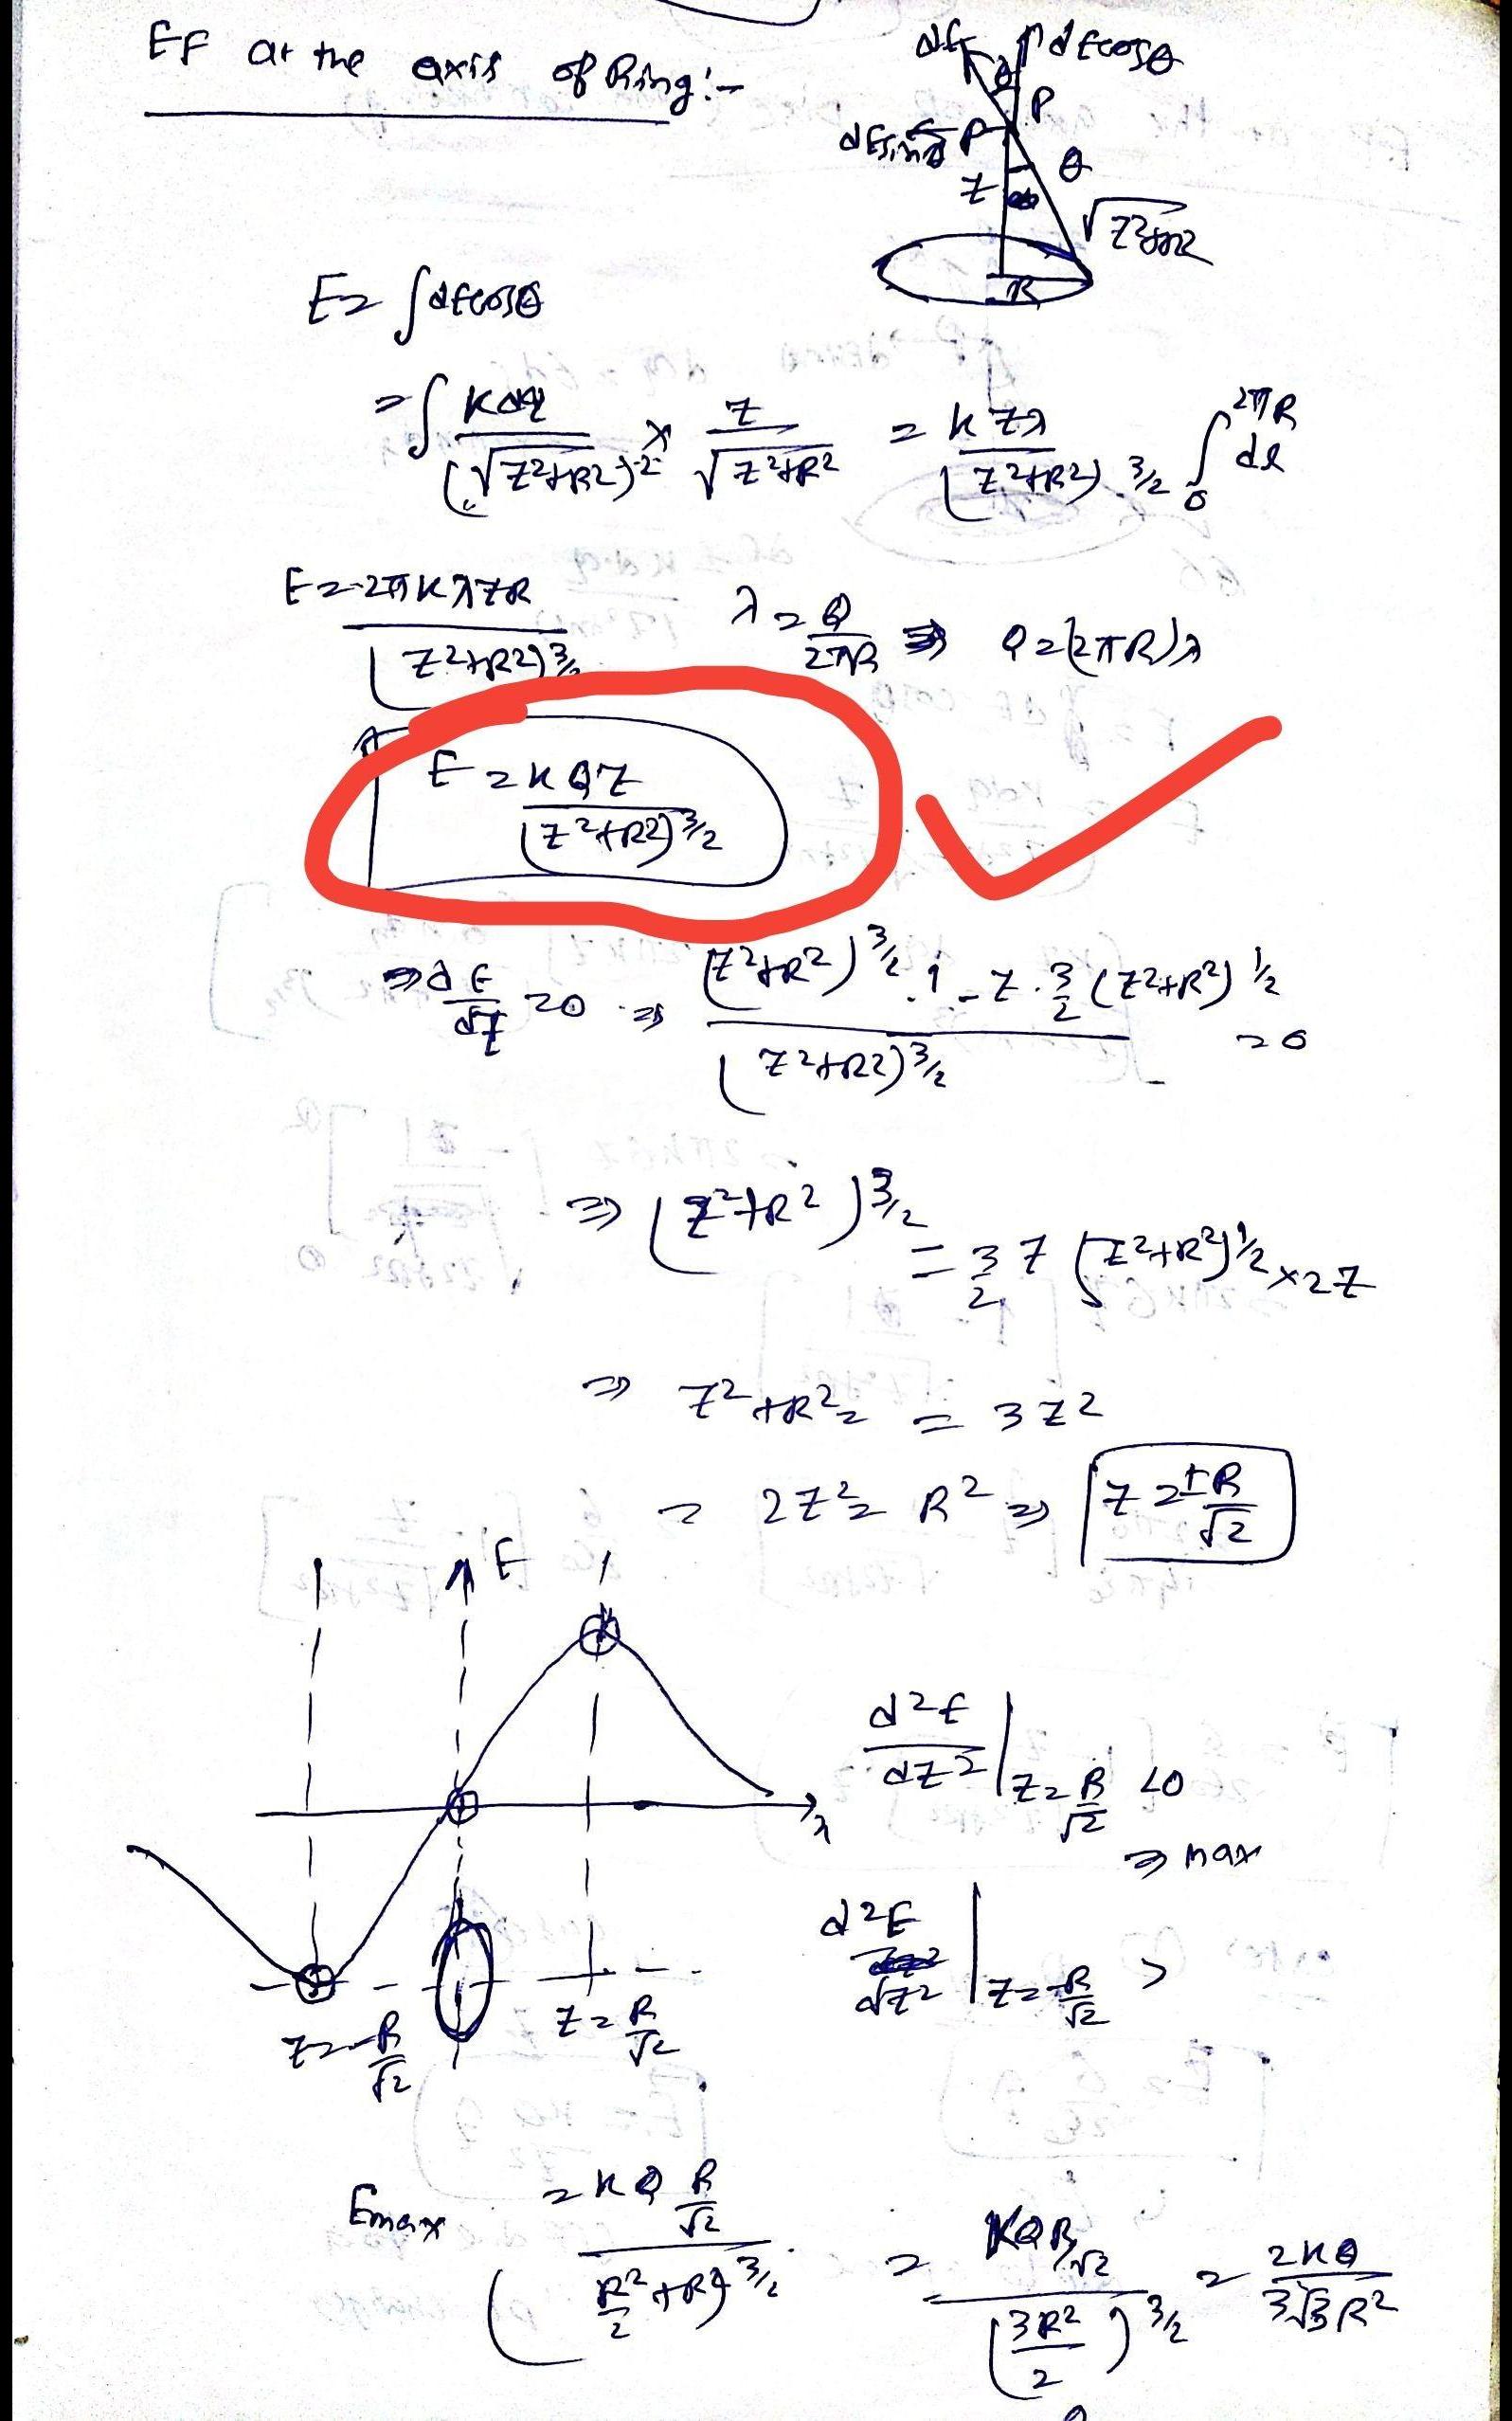 EF at the axis of Ring:-
dE
dEcosθ
θ
P
dEsinθ P
θ
z
√z²+R²
R
E = ∫dEcosθ
= ∫ Kdq/(√z²+R²)² × z/√z²+R² = kzλ/(z²+R²)^3/2 ∫₀^2πR dl
E = 2πKλzR/(z²+R²)^3/2
λ = Q/2πR ⇒ Q = (2πR)λ
E = KQz/(z²+R²)^3/2
⇒ dE/dz = 0 ⇒ ((z²+R²)^3/2 . 1 - z . 3/2 (z²+R²)^1/2)/(z²+R²)^3/2 = 0
⇒ (z²+R²)^3/2 = 3/2 z (z²+R²)^1/2 × 2z
⇒ z²+R² = = 3z²
= 2z² = R² ⇒ z = ±R/√2
E
x
d²E/dz² | z=R/√2 <0
⇒ max
d²E/dz² | z=-R/√2 >
z=-R/√2
z=R/√2
Emax = KQ R/√2 / (R²/2 + R²)^3/2 = KQR/√2 / (3R²/2)^3/2 = 2KQ/3√3R²